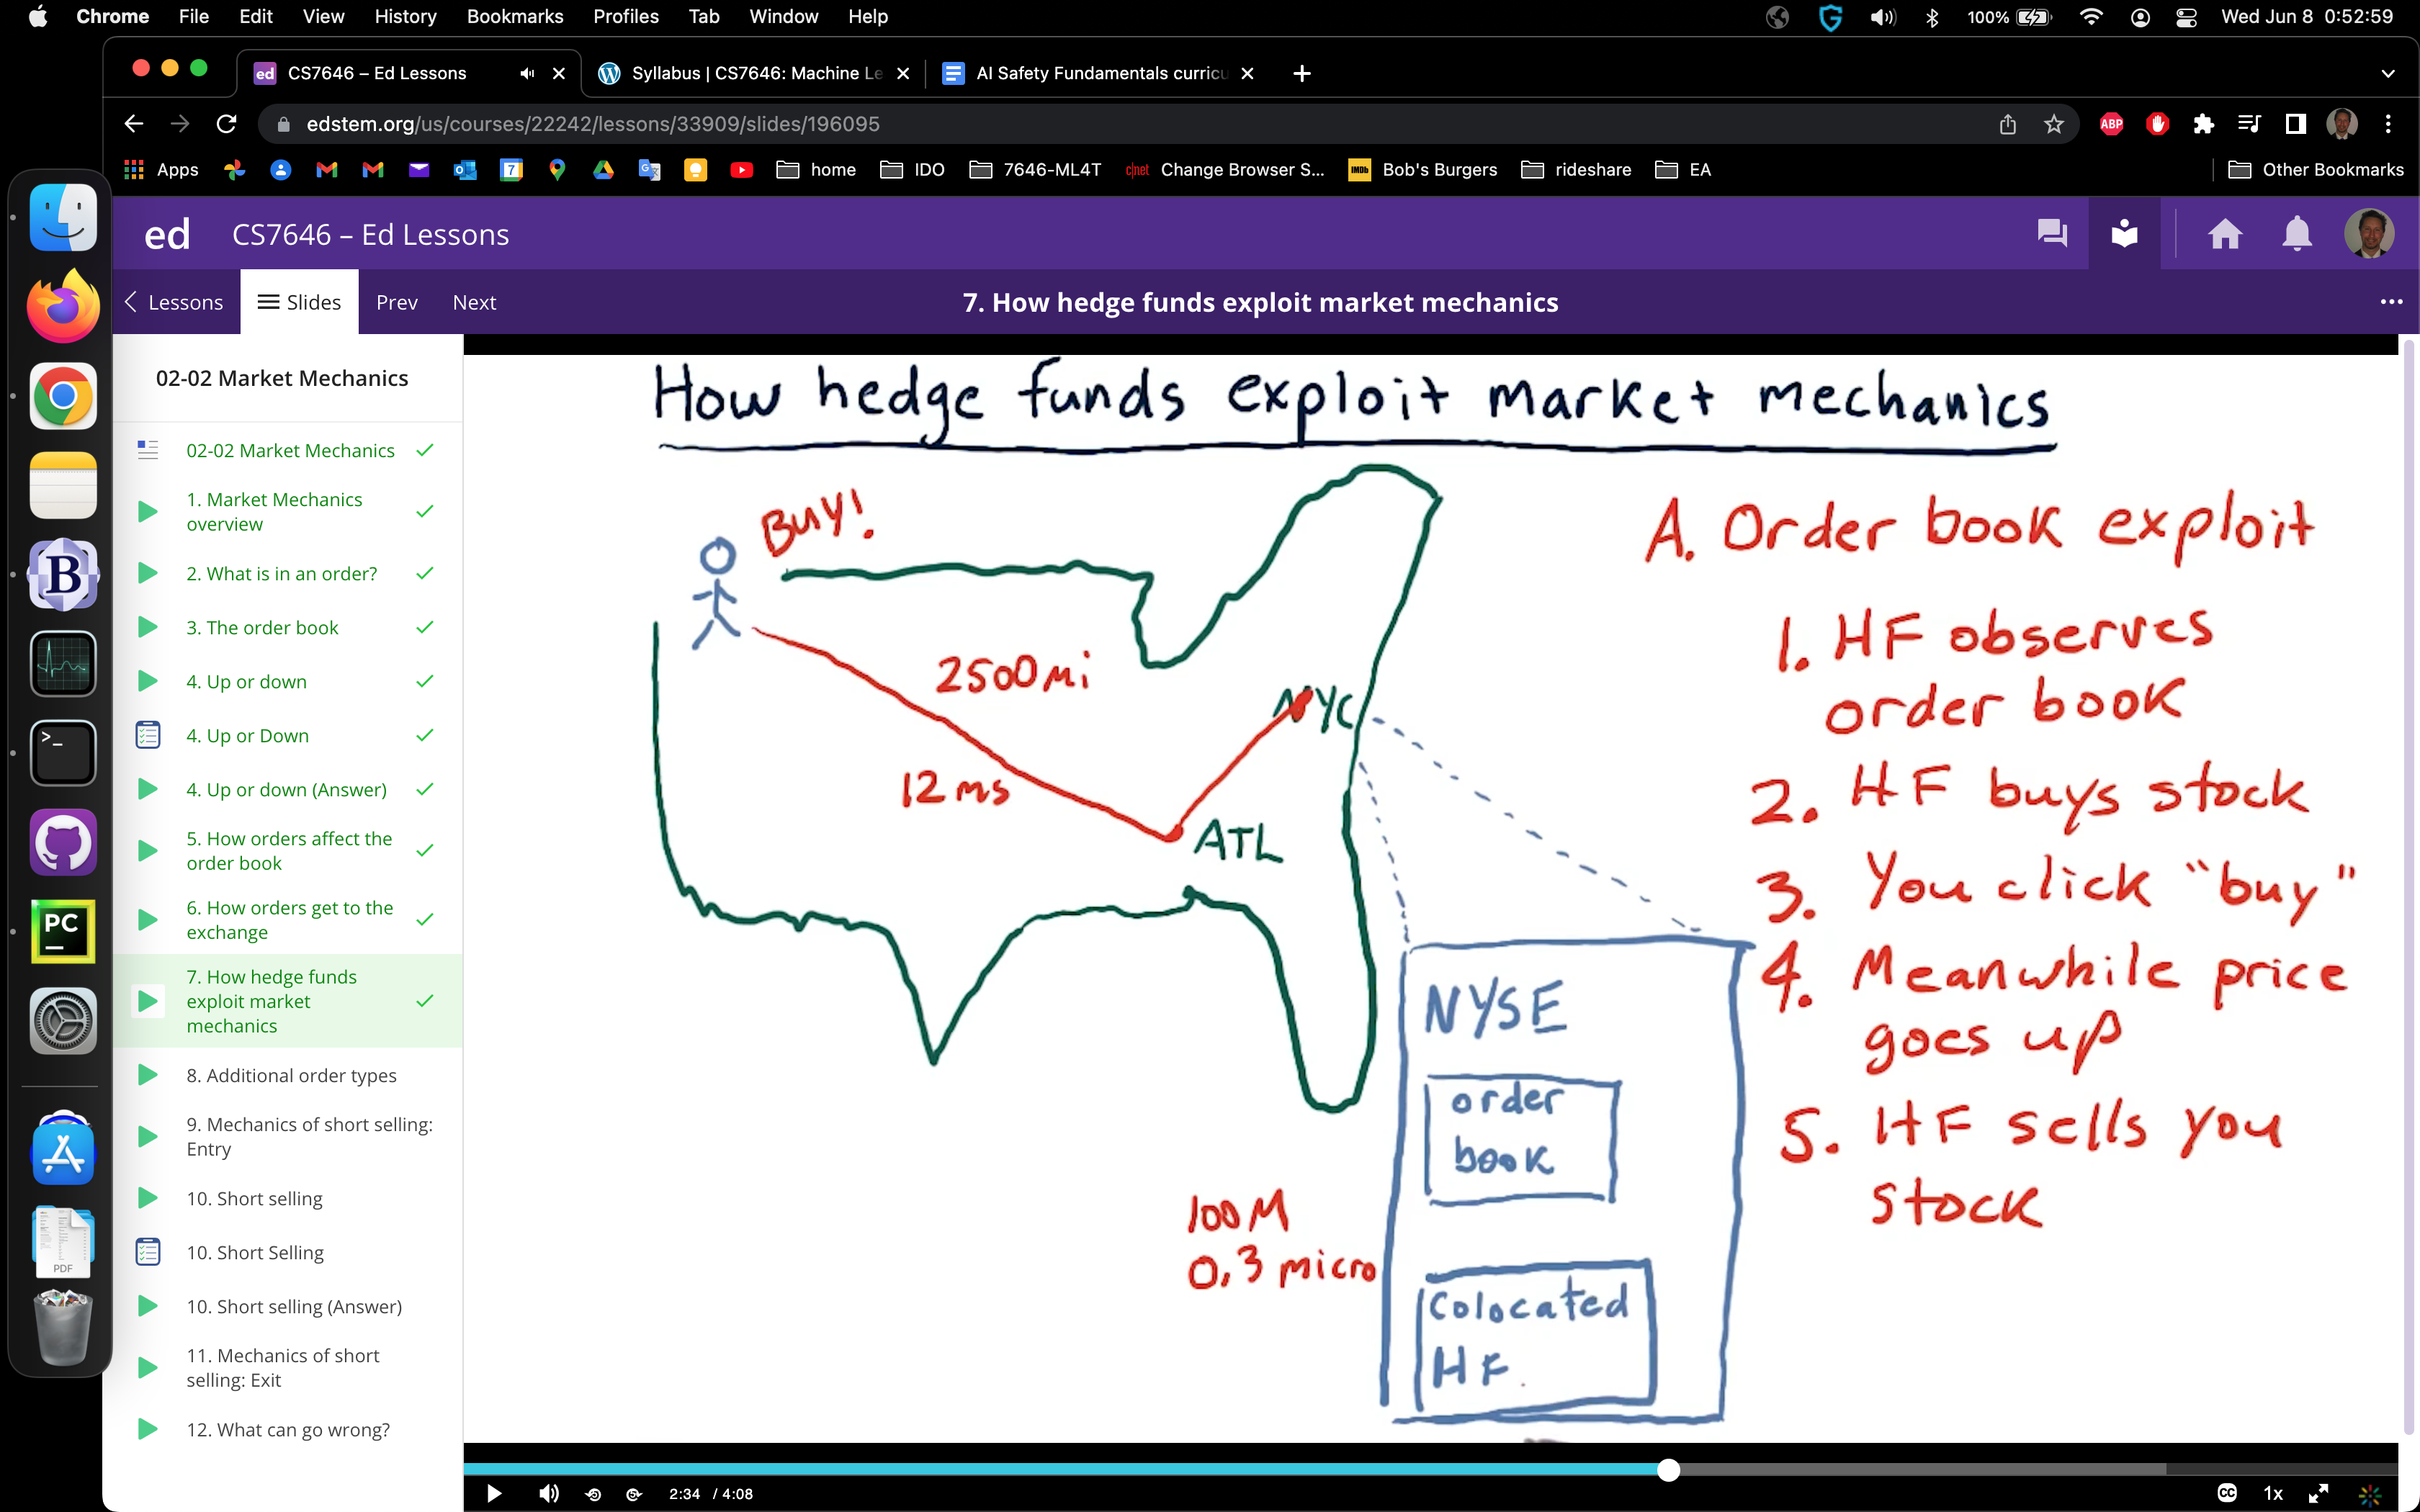 Chrome File Edit View History Bookmarks Profiles Tab Window Help 100% Wed Jun 8 0:52:59
ed CS7646 – Ed Lessons Syllabus | CS7646: Machine Le AI Safety Fundamentals curricu
edstem.org/us/courses/22242/lessons/33909/slides/196095 ABP
Apps 7 home IDO 7646-ML4T c|net Change Browser S... IMDb Bob's Burgers rideshare EA Other Bookmarks
ed CS7646 – Ed Lessons
Lessons Slides Prev Next 7. How hedge funds exploit market mechanics
02-02 Market Mechanics
02-02 Market Mechanics
1. Market Mechanics
overview
2. What is in an order?
3. The order book
4. Up or down
4. Up or Down
4. Up or down (Answer)
5. How orders affect the
order book
6. How orders get to the
exchange
7. How hedge funds
exploit market
mechanics
8. Additional order types
9. Mechanics of short selling:
Entry
10. Short selling
10. Short Selling
10. Short selling (Answer)
11. Mechanics of short
selling: Exit
12. What can go wrong?
B
>_
PC
PDF
How hedge funds exploit market mechanics
Buy!
2500mi
12ms
NYC
ATL
NYSE
order
book
100M
0.3 micro
Colocated
HF
A. Order book exploit
1. HF observes
order book
2. HF buys stock
3. You click "buy"
4. Meanwhile price
goes up
5. HF sells you
stock
2:34 / 4:08 CC 1x